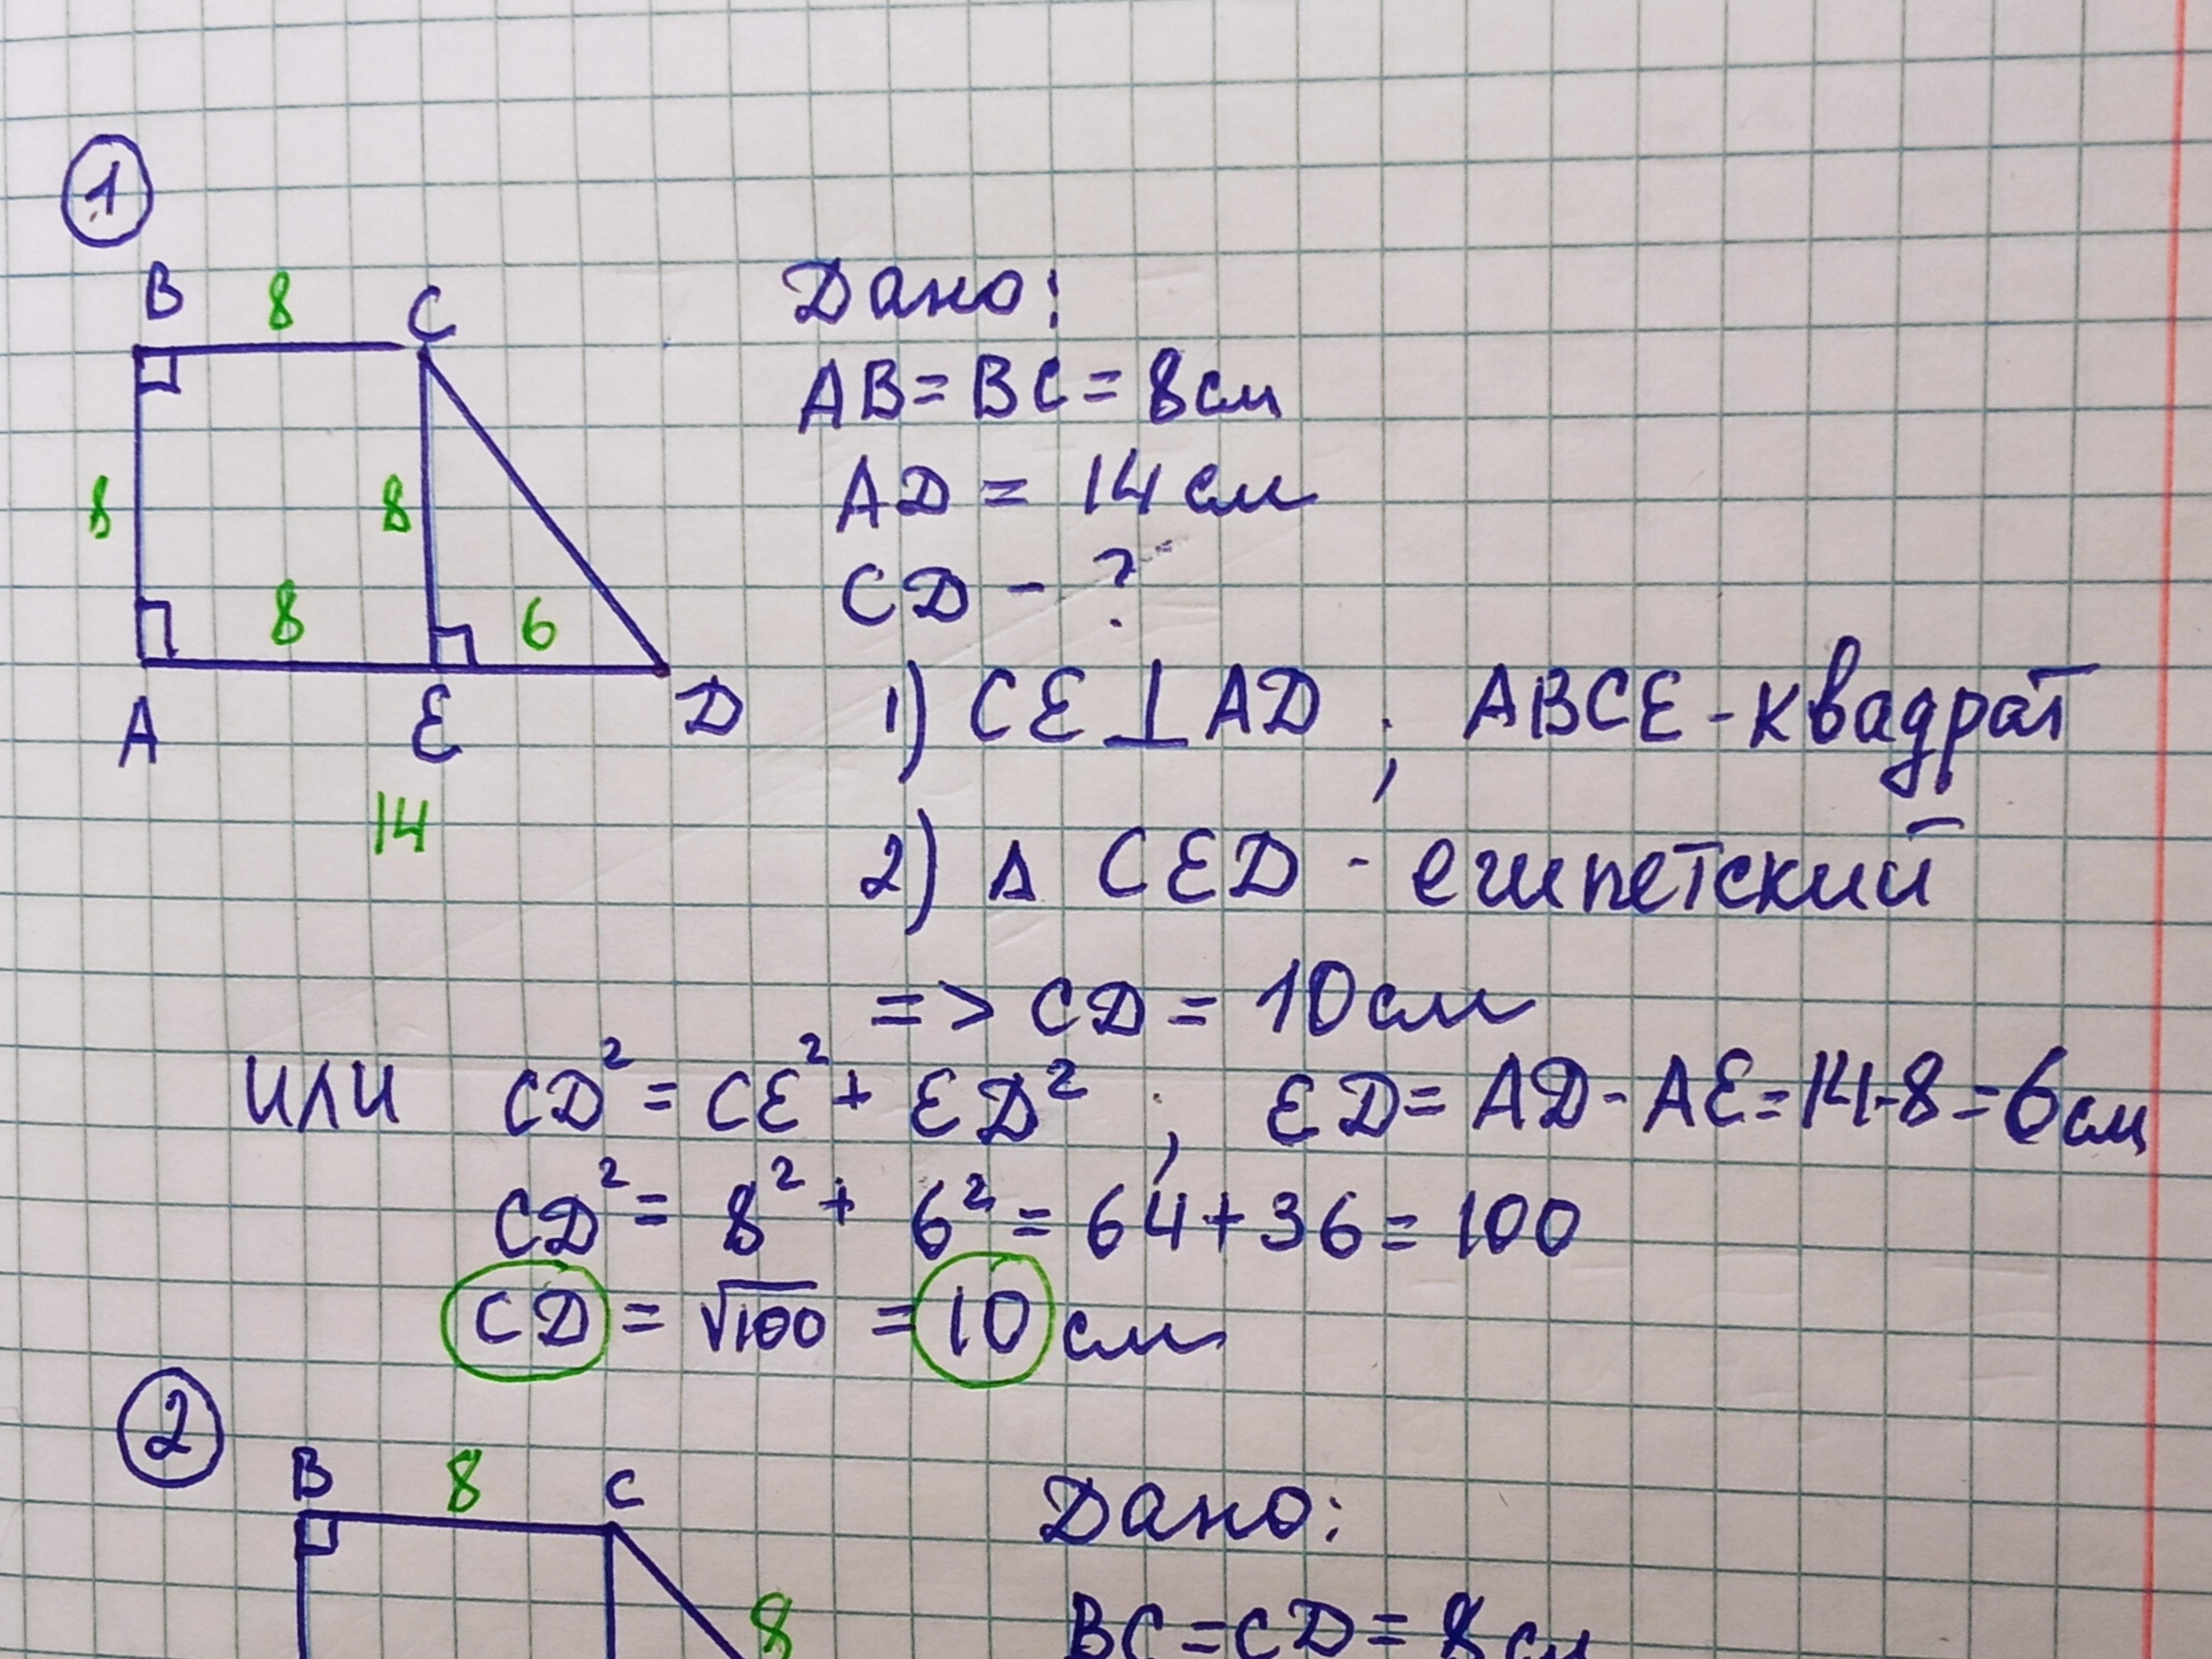 1
B 8 C
8 8
8 6
A E D
14
Дано:
AB = BC = 8 см
AD = 14 см
CD - ?
1) CE ⊥ AD ; ABCE - квадрат
2) Δ CED - египетский
=> CD = 10 см
или CD² = CE² + ED² ; ED = AD - AE = 14 - 8 = 6 см
CD² = 8² + 6² = 64 + 36 = 100
CD = √100 = 10 см
2
B 8 C
8
Дано:
BC = CD = 8 см